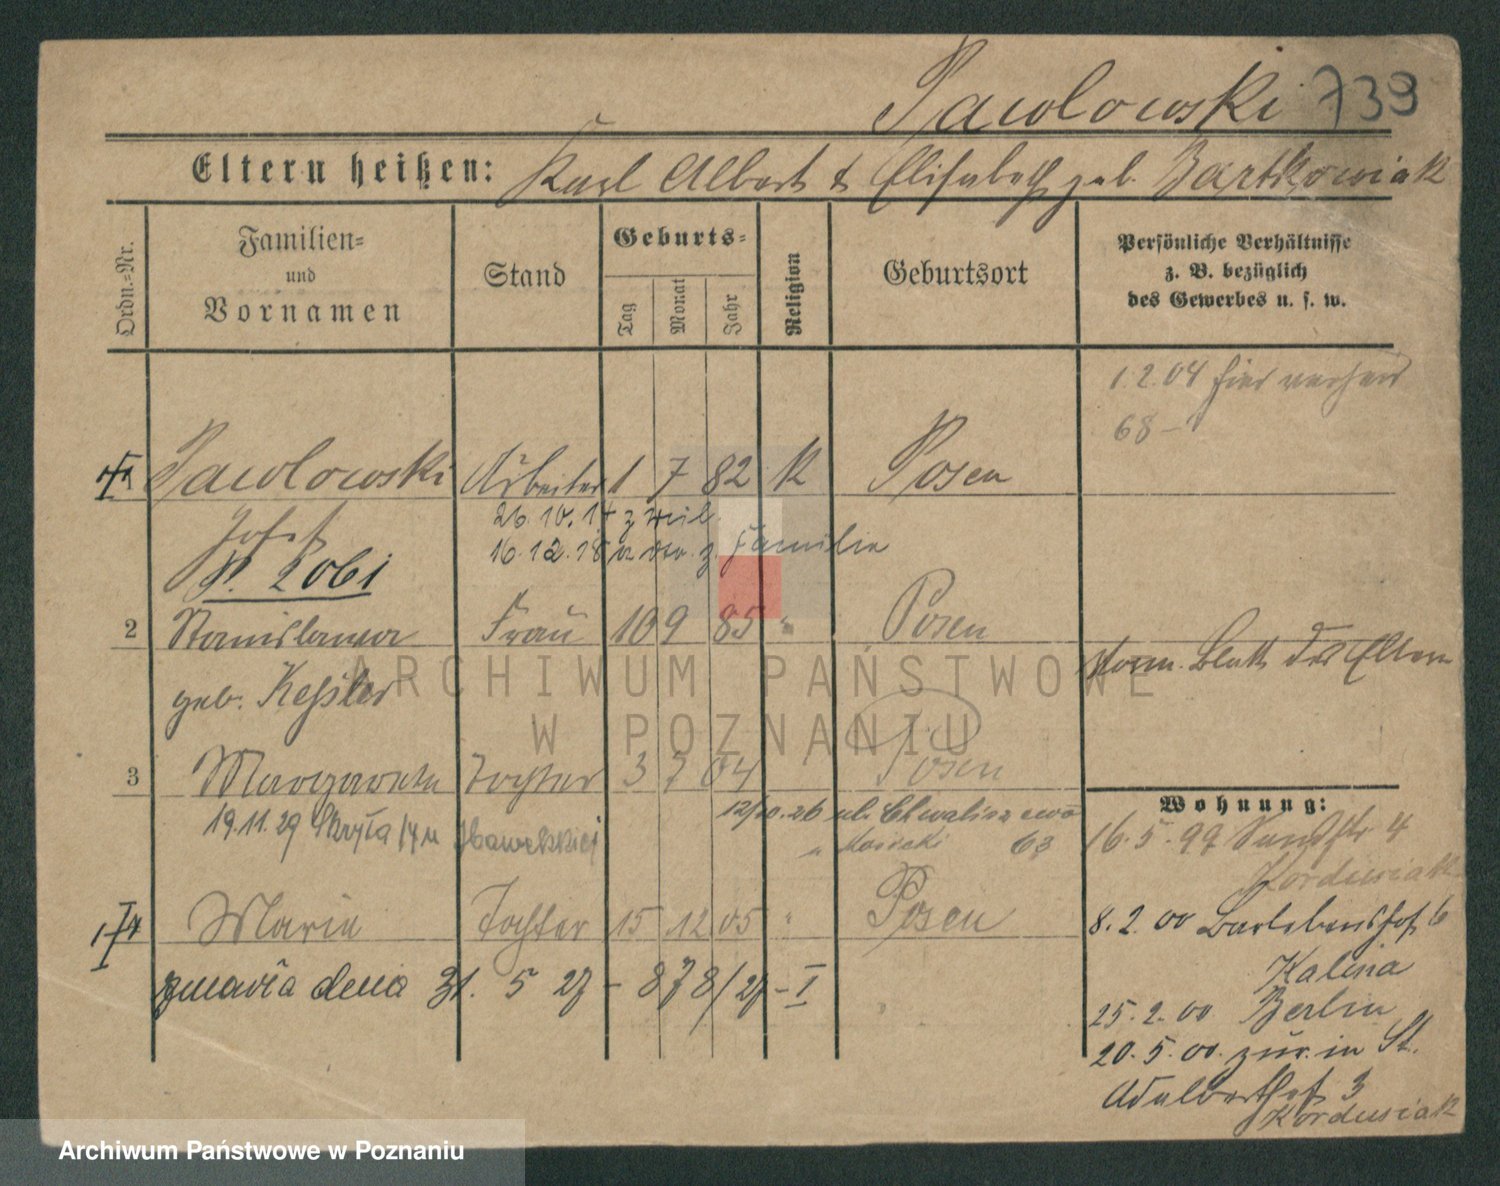 Pawlowski 739
Eltern heißen: Karl Albert & Elisabeth geb. Bartkowiak
Ordn.=Nr.
Familien=
und
Vornamen
Stand
Geburts=
Tag
Monat
Jahr
Religion
Geburtsort
Persönliche Verhältnisse
z. B. bezüglich
des Gewerbes u. s. w.
1.2.04 hier
68 –
Pawlowski Arbeiter 1 7 82 K Posen
Josef
26.10.14 z Mil.
16.12.18 z. Familie
2 Stanislawa Frau 10 9 85 " Posen
geb. Kessler
Blatt der Eltern
3 Margarete Tochter 3 7 04 Posen
12/10.26 ul.
63
19.11.29
Marie Tochter 15 12 05 " Posen
zmarła dnia 31. 5 27 – 878/27 – I
Wohnung:
16.5.99 Sandstr 4
Kordusiak
8.2.00 Barlebenshof 6
Kalina
25.2.00 Berlin
20.5.00. zur. in St.
Adalberthof 3
Kordusiak
ARCHIWUM PAŃSTWOWE
W POZNANIU
Archiwum Państwowe w Poznaniu